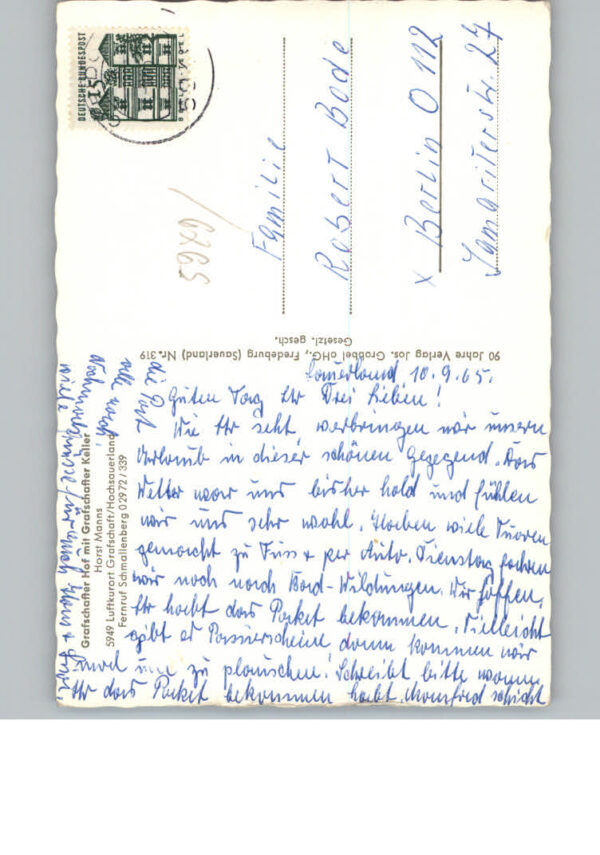 DEUTSCHE BUNDESPOST
15
Familie
Robert Bode
x Berlin O 112
Samariterstr. 27
6765
90 Jahre Verlag Jos. Grobbel oHG., Fredeburg (Sauerland) Nr. 319
Gesetzl. gesch.
Grafschafter Hof mit Grafschafter Keller
Horst Manns
5949 Luftkurort Grafschaft/Hochsauerland
Fernruf Schmallenberg 0 29 72 / 339
Sauerland, 10.9.65.
Guten Tag Ihr Drei Lieben!
Wie Ihr seht verbringen wir unsern
Urlaub in dieser schönen Gegegend. Das
Wetter war uns bisher hold und fühlen
wir uns sehr wohl. Haben viele Turen
gemacht zu Fuss + per Auto. Dienstag fahren
wir noch nach Bad-Wildungen. Wir hoffen,
Ihr habt das Paket bekommen. Vielleicht
gibt es Passierscheine dann kommen wir
mal zu plauschen! Schreibt bitte wann
Ihr das Paket bekommen habt. Manfred schickt
die Post
alle nach!
viele